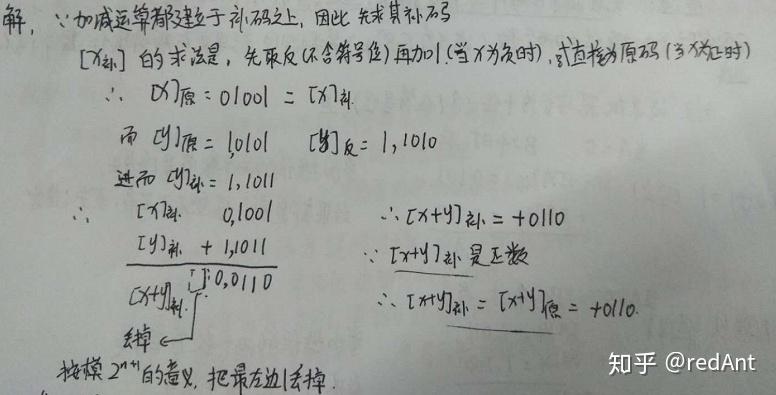 解，∵加减运算都建立于补码之上，因此先求其补码
[X补] 的求法是，先取反(不含符号位)再加1(当X为负时)，或直接为原码(当X为正时)
∴ [X]原 = 01001 = [X]补
而 [y]原 = 1,0101 [y]反 = 1,1010
进而 [y]补 = 1,1011
∴ [X]补 0,1001
[y]补 + 1,1011
[x+y]补 1:0,0110
丢掉
按模 2ⁿ⁺¹ 的意义，把最左边1丢掉.
∴ [x+y]补 = +0110
∵ [x+y]补 是正数
∴ [x+y]补 = [x+y]原 = +0110.
知乎 @redAnt